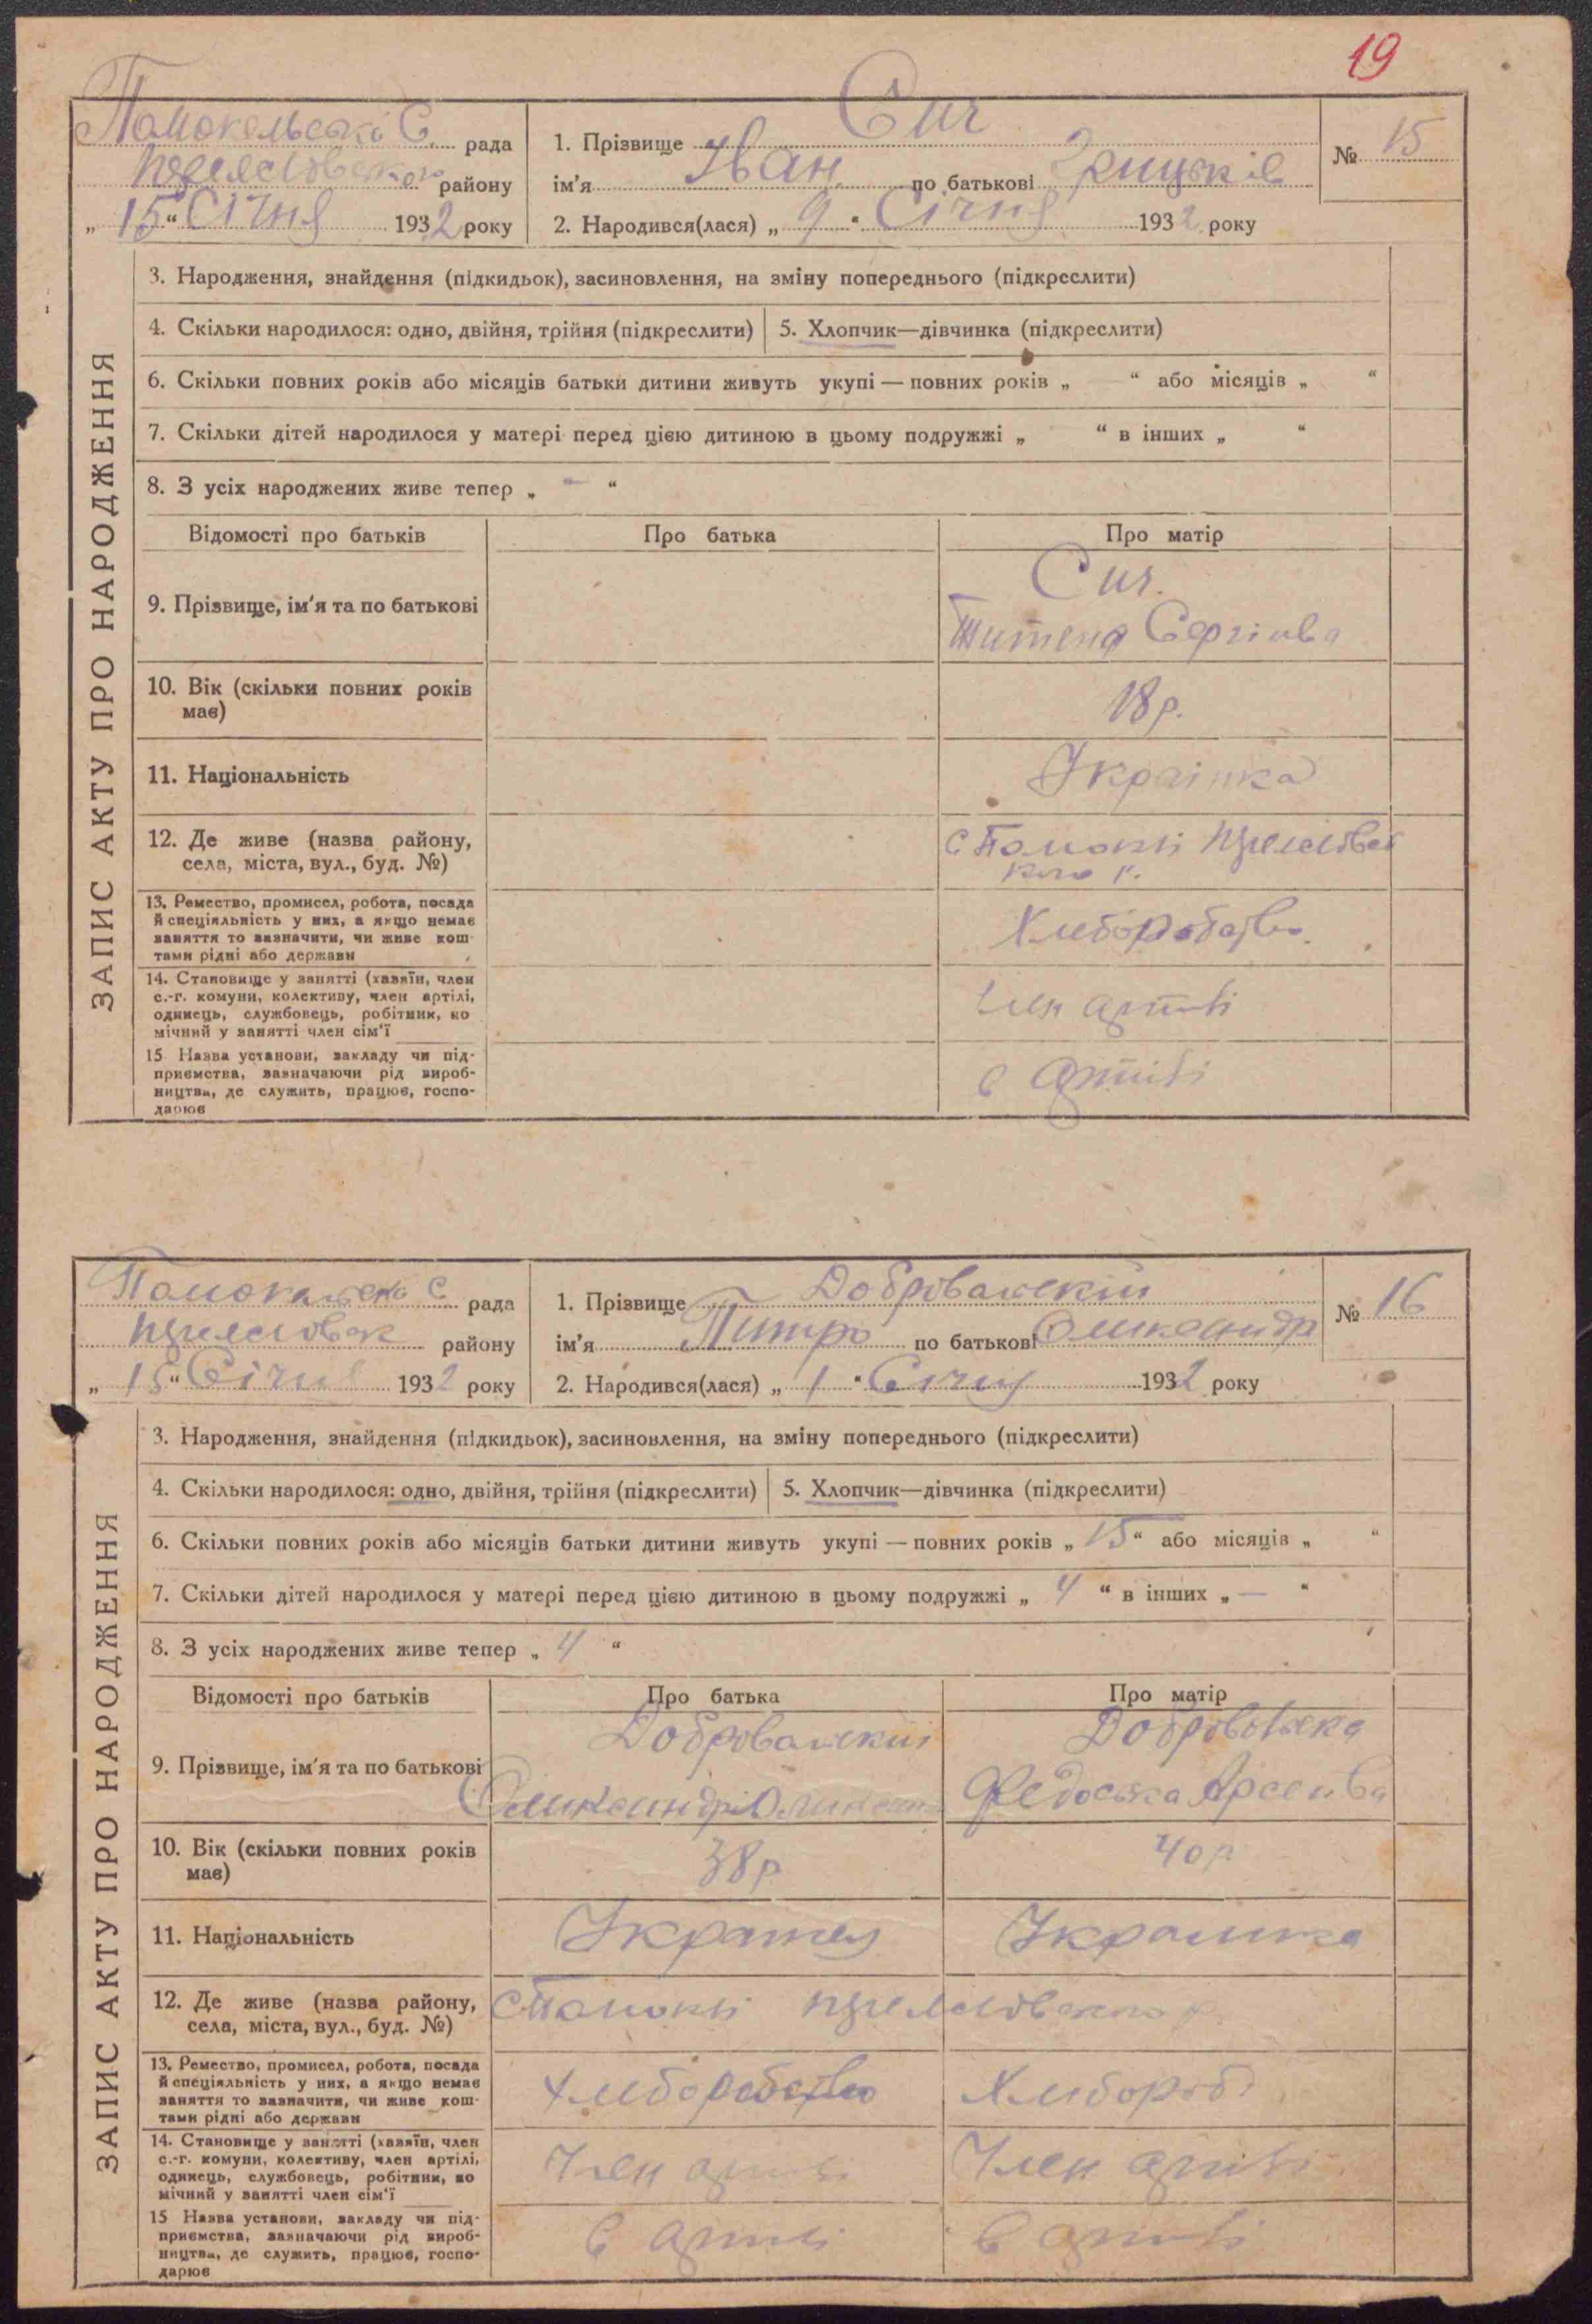 19
рада
району
„ 15 “ Січня 1932 року
1. Прізвище Сич
ім'я Іван по батькові
2. Народився(лася) „ 9 “ Січня 1932 року
№ 15
ЗАПИС АКТУ ПРО НАРОДЖЕННЯ
3. Народження, знайдення (підкидьок), засиновлення, на зміну попереднього (підкреслити)
4. Скільки народилося: одно, двійня, трійня (підкреслити)
5. Хлопчик—дівчинка (підкреслити)
6. Скільки повних років або місяців батьки дитини живуть укупі — повних років „ “ або місяців „ “
7. Скільки дітей народилося у матері перед цією дитиною в цьому подружжі „ “ в інших „ “
8. З усіх народжених живе тепер „ – “
Відомості про батьків
Про батька
Про матір
9. Прізвище, ім'я та по батькові
Сич.
10. Вік (скільки повних років
має)
18 р.
11. Національність
Українка
12. Де живе (назва району,
села, міста, вул., буд. №)
с
13. Ремество, промисел, робота, посада
й спеціяльність у них, а якщо немає
заняття то зазначити, чи живе кош-
тами рідні або держави
14. Становище у занятті (хазяїн, член
с.-г. комуни, колективу, член артілі,
одинець, службовець, робітник, по
мічний у занятті член сім'ї
член артілі
15 Назва установи, закладу чи під-
приємства, зазначаючи рід вироб-
ництва, де служить, працює, госпо-
дарює
в артілі
рада
району
„ 15 “ Січня 1932 року
1. Прізвище
ім'я по батькові
2. Народився(лася) „ 1 “ Січня 1932 року
№ 16
ЗАПИС АКТУ ПРО НАРОДЖЕННЯ
3. Народження, знайдення (підкидьок), засиновлення, на зміну попереднього (підкреслити)
4. Скільки народилося: одно, двійня, трійня (підкреслити)
5. Хлопчик—дівчинка (підкреслити)
6. Скільки повних років або місяців батьки дитини живуть укупі — повних років „ 15 “ або місяців „ “
7. Скільки дітей народилося у матері перед цією дитиною в цьому подружжі „ 4 “ в інших „ — “
8. З усіх народжених живе тепер „ 4 “
Відомості про батьків
Про батька
Про матір
9. Прізвище, ім'я та по батькові
10. Вік (скільки повних років
має)
38 р
40 р
11. Національність
12. Де живе (назва району,
села, міста, вул., буд. №)
13. Ремество, промисел, робота, посада
й спеціяльність у них, а якщо немає
заняття то зазначити, чи живе кош-
тами рідні або держави
14. Становище у занятті (хазяїн, член
с.-г. комуни, колективу, член артілі,
одинець, службовець, робітник, по
мічний у занятті член сім'ї
Член артілі
Член артілі
15 Назва установи, закладу чи під-
приємства, зазначаючи рід вироб-
ництва, де служить, працює, госпо-
дарює
в артілі
в артілі